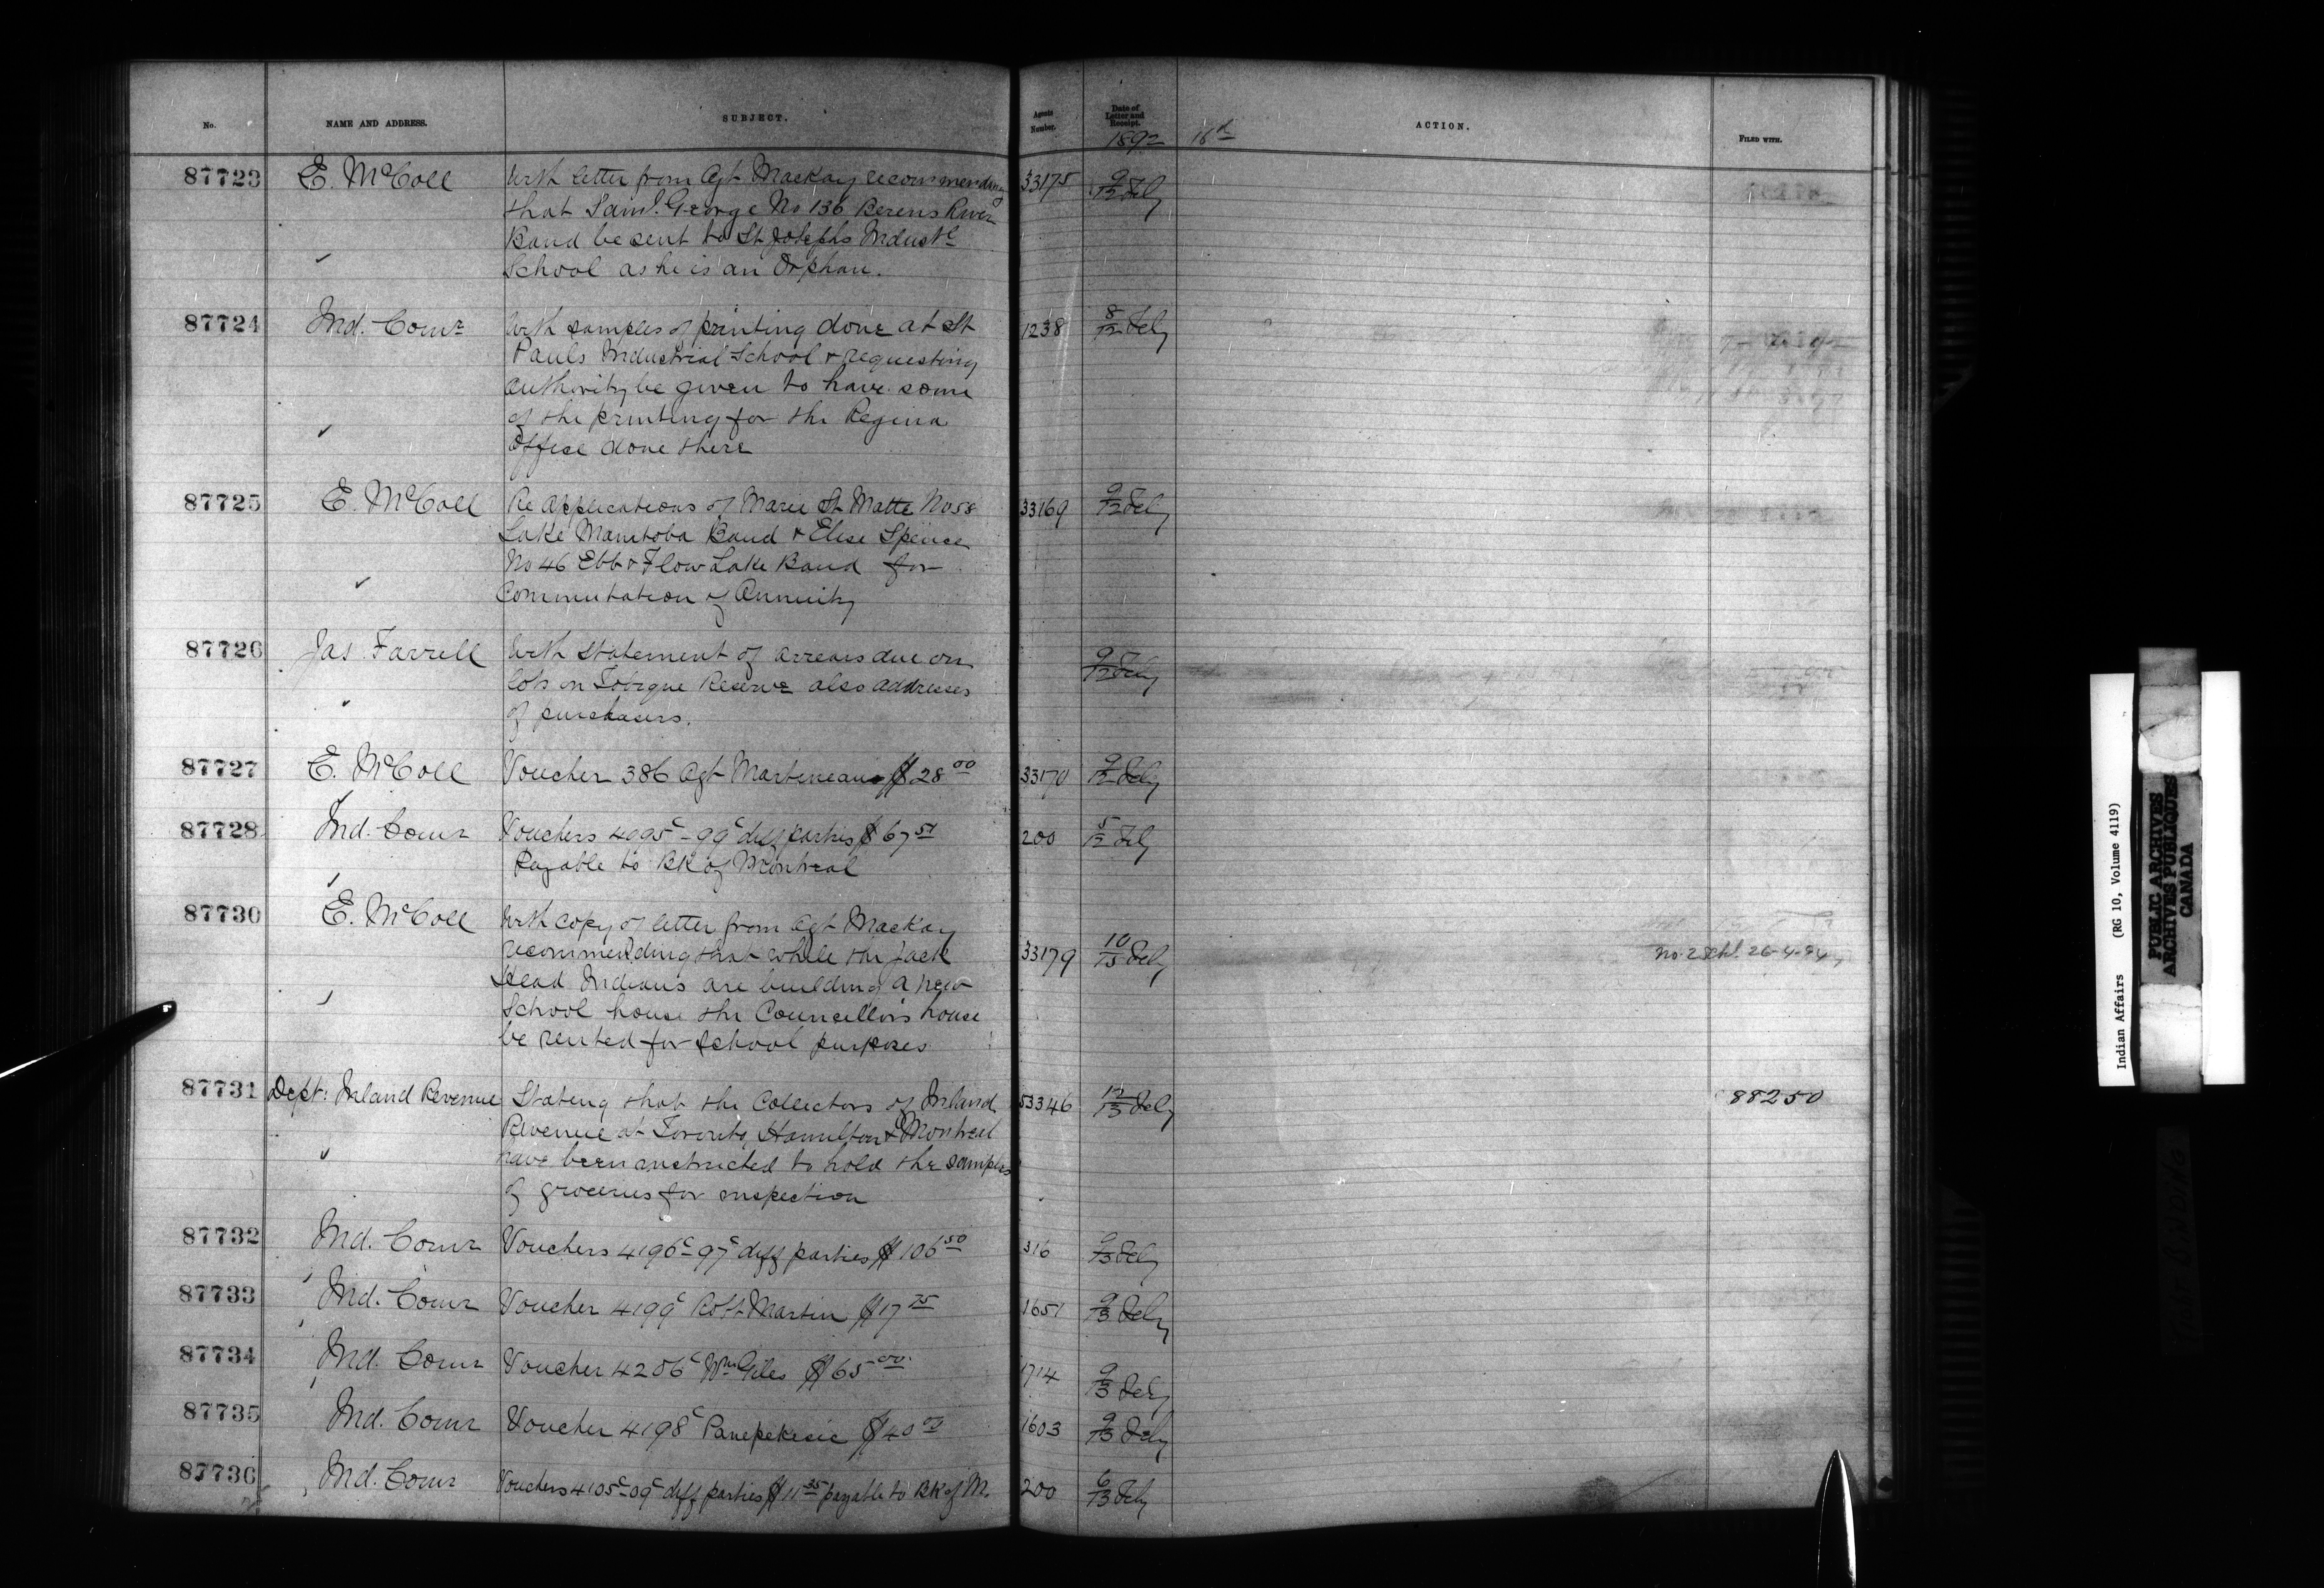 No. NAME AND ADDRESS. SUBJECT. Agents Number. Date of Letter and Receipt. ACTION. FILED WITH.
1892 16th
87723 E. McColl With letter from Agt Mackay recommending 33175 9/12 Feby
that Saml. George No 136 Berens River
Band be sent to St Josephs Industl
School as he is an Orphan.
87724 Ind. Comr With samples of printing done at St 1238 8/12 Feby
Pauls Industrial School & requesting
authority be given to have some
of the printing for the Regina
Office done there
87725 E. McColl Re Applications of Marie St Matte No 58 33169 9/12 Feby
Lake Manitoba Band & Elise Spence
No 46 Ebb & Flow Lake Band for
Commutation of Annuity
87726 Jas. Farrell With Statement of arrears due on 9/12 Feby
lots on Tobique Reserve also addresses
of purchasers.
87727 E. McColl Voucher 386 Agt Martineau $28 00 33170 9/12 Feby
87728 Ind. Comr Vouchers 4995c-99c diff parties $67 51 200 5/12 Feby
Payable to BK of Montreal
87730 E. McColl With copy of letter from Agt Mackay
recommending that while the Jack 33179 10/13 Feby No. 2 Schl. 26-4-94
Head Indians are building a new
School house the Councillors house
be rented for School purposes
87731 Dept: Inland Revenue Stating that the Collectors of Inland 53346 12/13 Feby 88250
Revenue at Toronto, Hamilton & Montreal
have been instructed to hold the samples
of groceries for inspection
87732 Ind. Comr Vouchers 4196c-97c diff parties $106 50 316 9/13 Feby
87733 Ind. Comr Voucher 4199c Robt Martin $17 75 1651 9/13 Feby
87734 Ind. Comr Voucher 4206c Wm Giles $65 00 1714 9/13 Feby
87735 Ind. Comr Voucher 4198c Panepekesic $40 00 1603 9/13 Feby
87736 Ind. Comr Vouchers 4105c-09c diff parties $11 35 payable to BK of M. 200 6/13 Feby
Indian Affairs (RG 10, Volume 4119)
PUBLIC ARCHIVES
ARCHIVES PUBLIQUES
CANADA